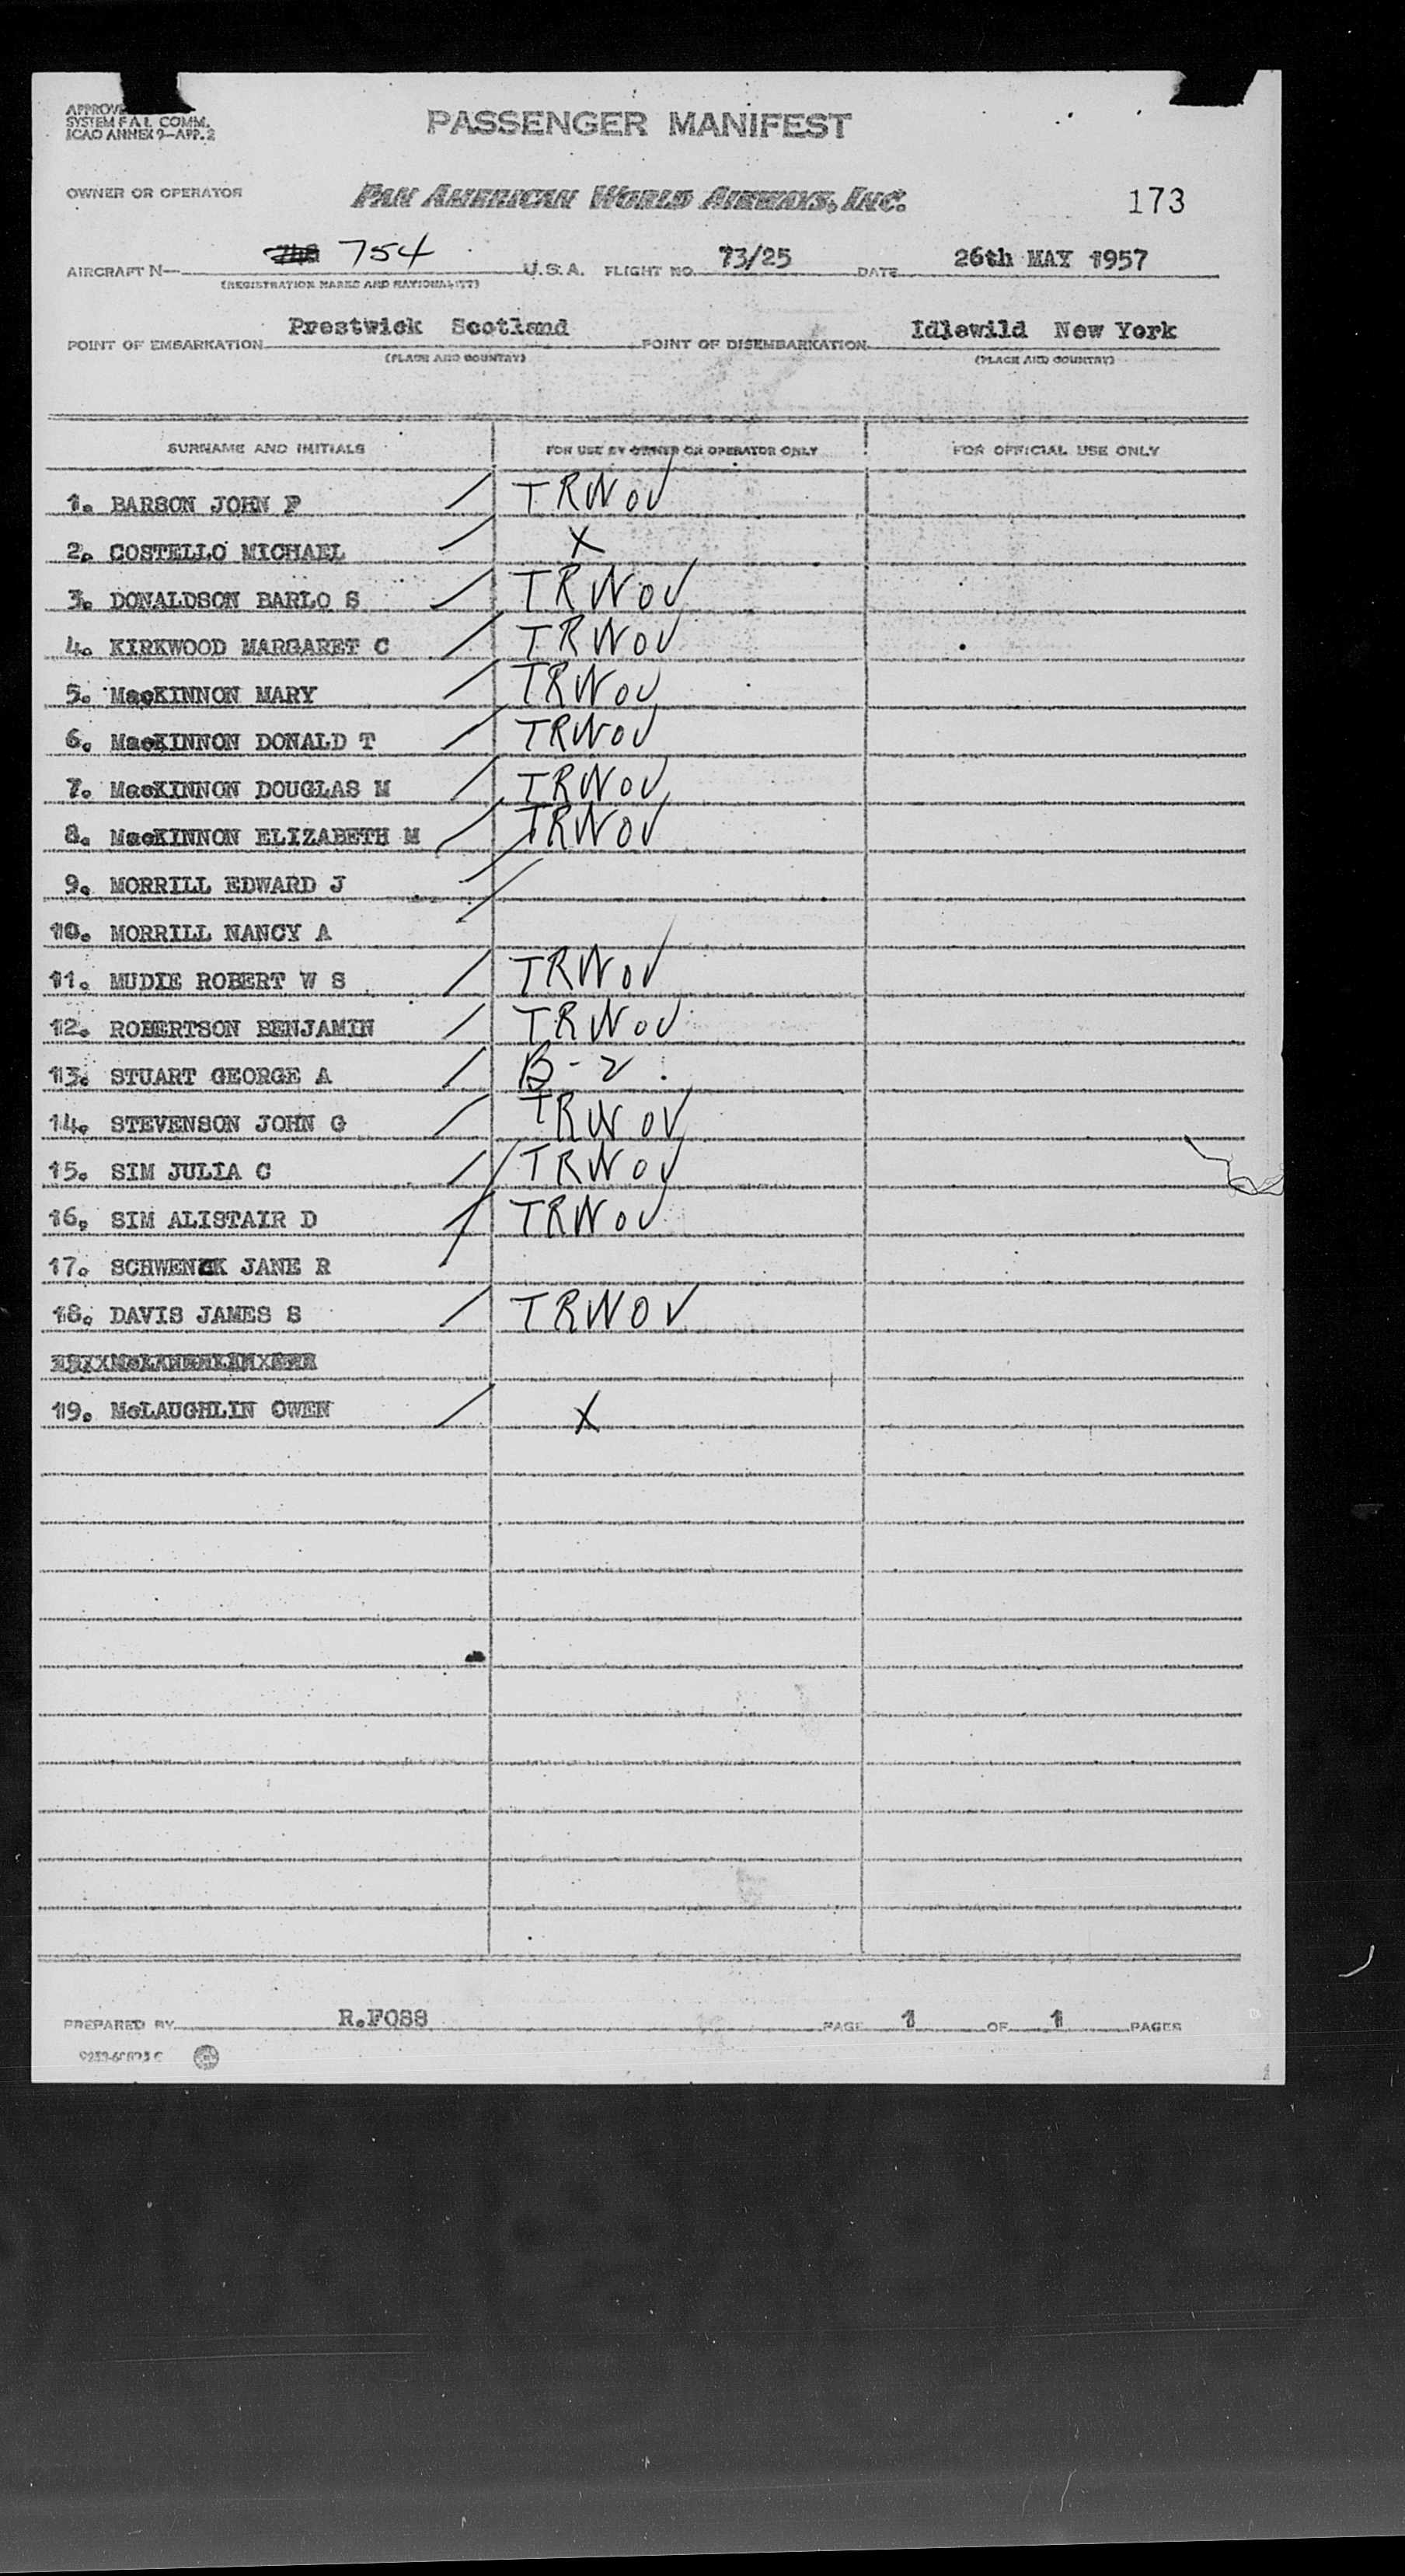 SYSTEM F A L COMM.
ICAO ANNEX 9-APP. 2
PASSENGER MANIFEST
OWNER OR OPERATOR PAN AMERICAN WORLD AIRWAYS, INC. 173
AIRCRAFT N— 754 U.S.A. FLIGHT NO. 73/25 DATE 26th MAY 1957
(REGISTRATION MARKS AND NATIONALITY)
POINT OF EMBARKATION Prestwick Scotland POINT OF DISEMBARKATION Idlewild New York
(PLACE AND COUNTRY) (PLACE AND COUNTRY)
SURNAME AND INITIALS FOR USE BY OWNER OR OPERATOR ONLY FOR OFFICIAL USE ONLY
1. BARSON JOHN P / TRWOV
2. COSTELLO MICHAEL / X
3. DONALDSON BARLO S / TRWOV
4. KIRKWOOD MARGARET C / TRWOV
5. MacKINNON MARY / TRWOV
6. MacKINNON DONALD T / TRWOV
7. MacKINNON DOUGLAS M / TRWOV
8. MacKINNON ELIZABETH M / TRWOV
9. MORRILL EDWARD J /
10. MORRILL NANCY A /
11. MUDIE ROBERT W S / TRWOV
12. ROBERTSON BENJAMIN / TRWOV
13. STUART GEORGE A / B-2
14. STEVENSON JOHN G / TRWOV
15. SIM JULIA C / TRWOV
16. SIM ALISTAIR D / TRWOV
17. SCHWENCK JANE R /
18. DAVIS JAMES S / TRWOV
19. McLAUGHLIN OWEN / X
PREPARED BY R.FOSS PAGE 1 OF 1 PAGES